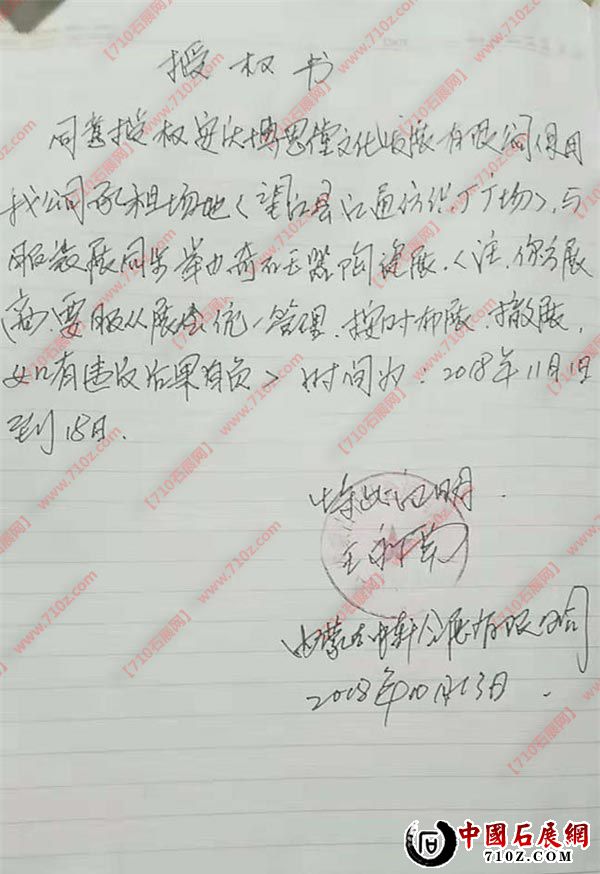 授权书
同意授权安庆博思堂文化发展有限公司使用
我公司承租场地<望江县江通纺织厂广场>,与
服装展同步举办奇石玉器陶瓷展.<注.你方展
商,要服从展会统一管理.按时布展.撤展,
如有违反后果自负> 时间为:2018年11月1日
到18日.
特此证明.
内蒙古中轩会展有限公司
2018年10月13日.
【710石展网】www.710z.com
中國石展網
710Z.COM